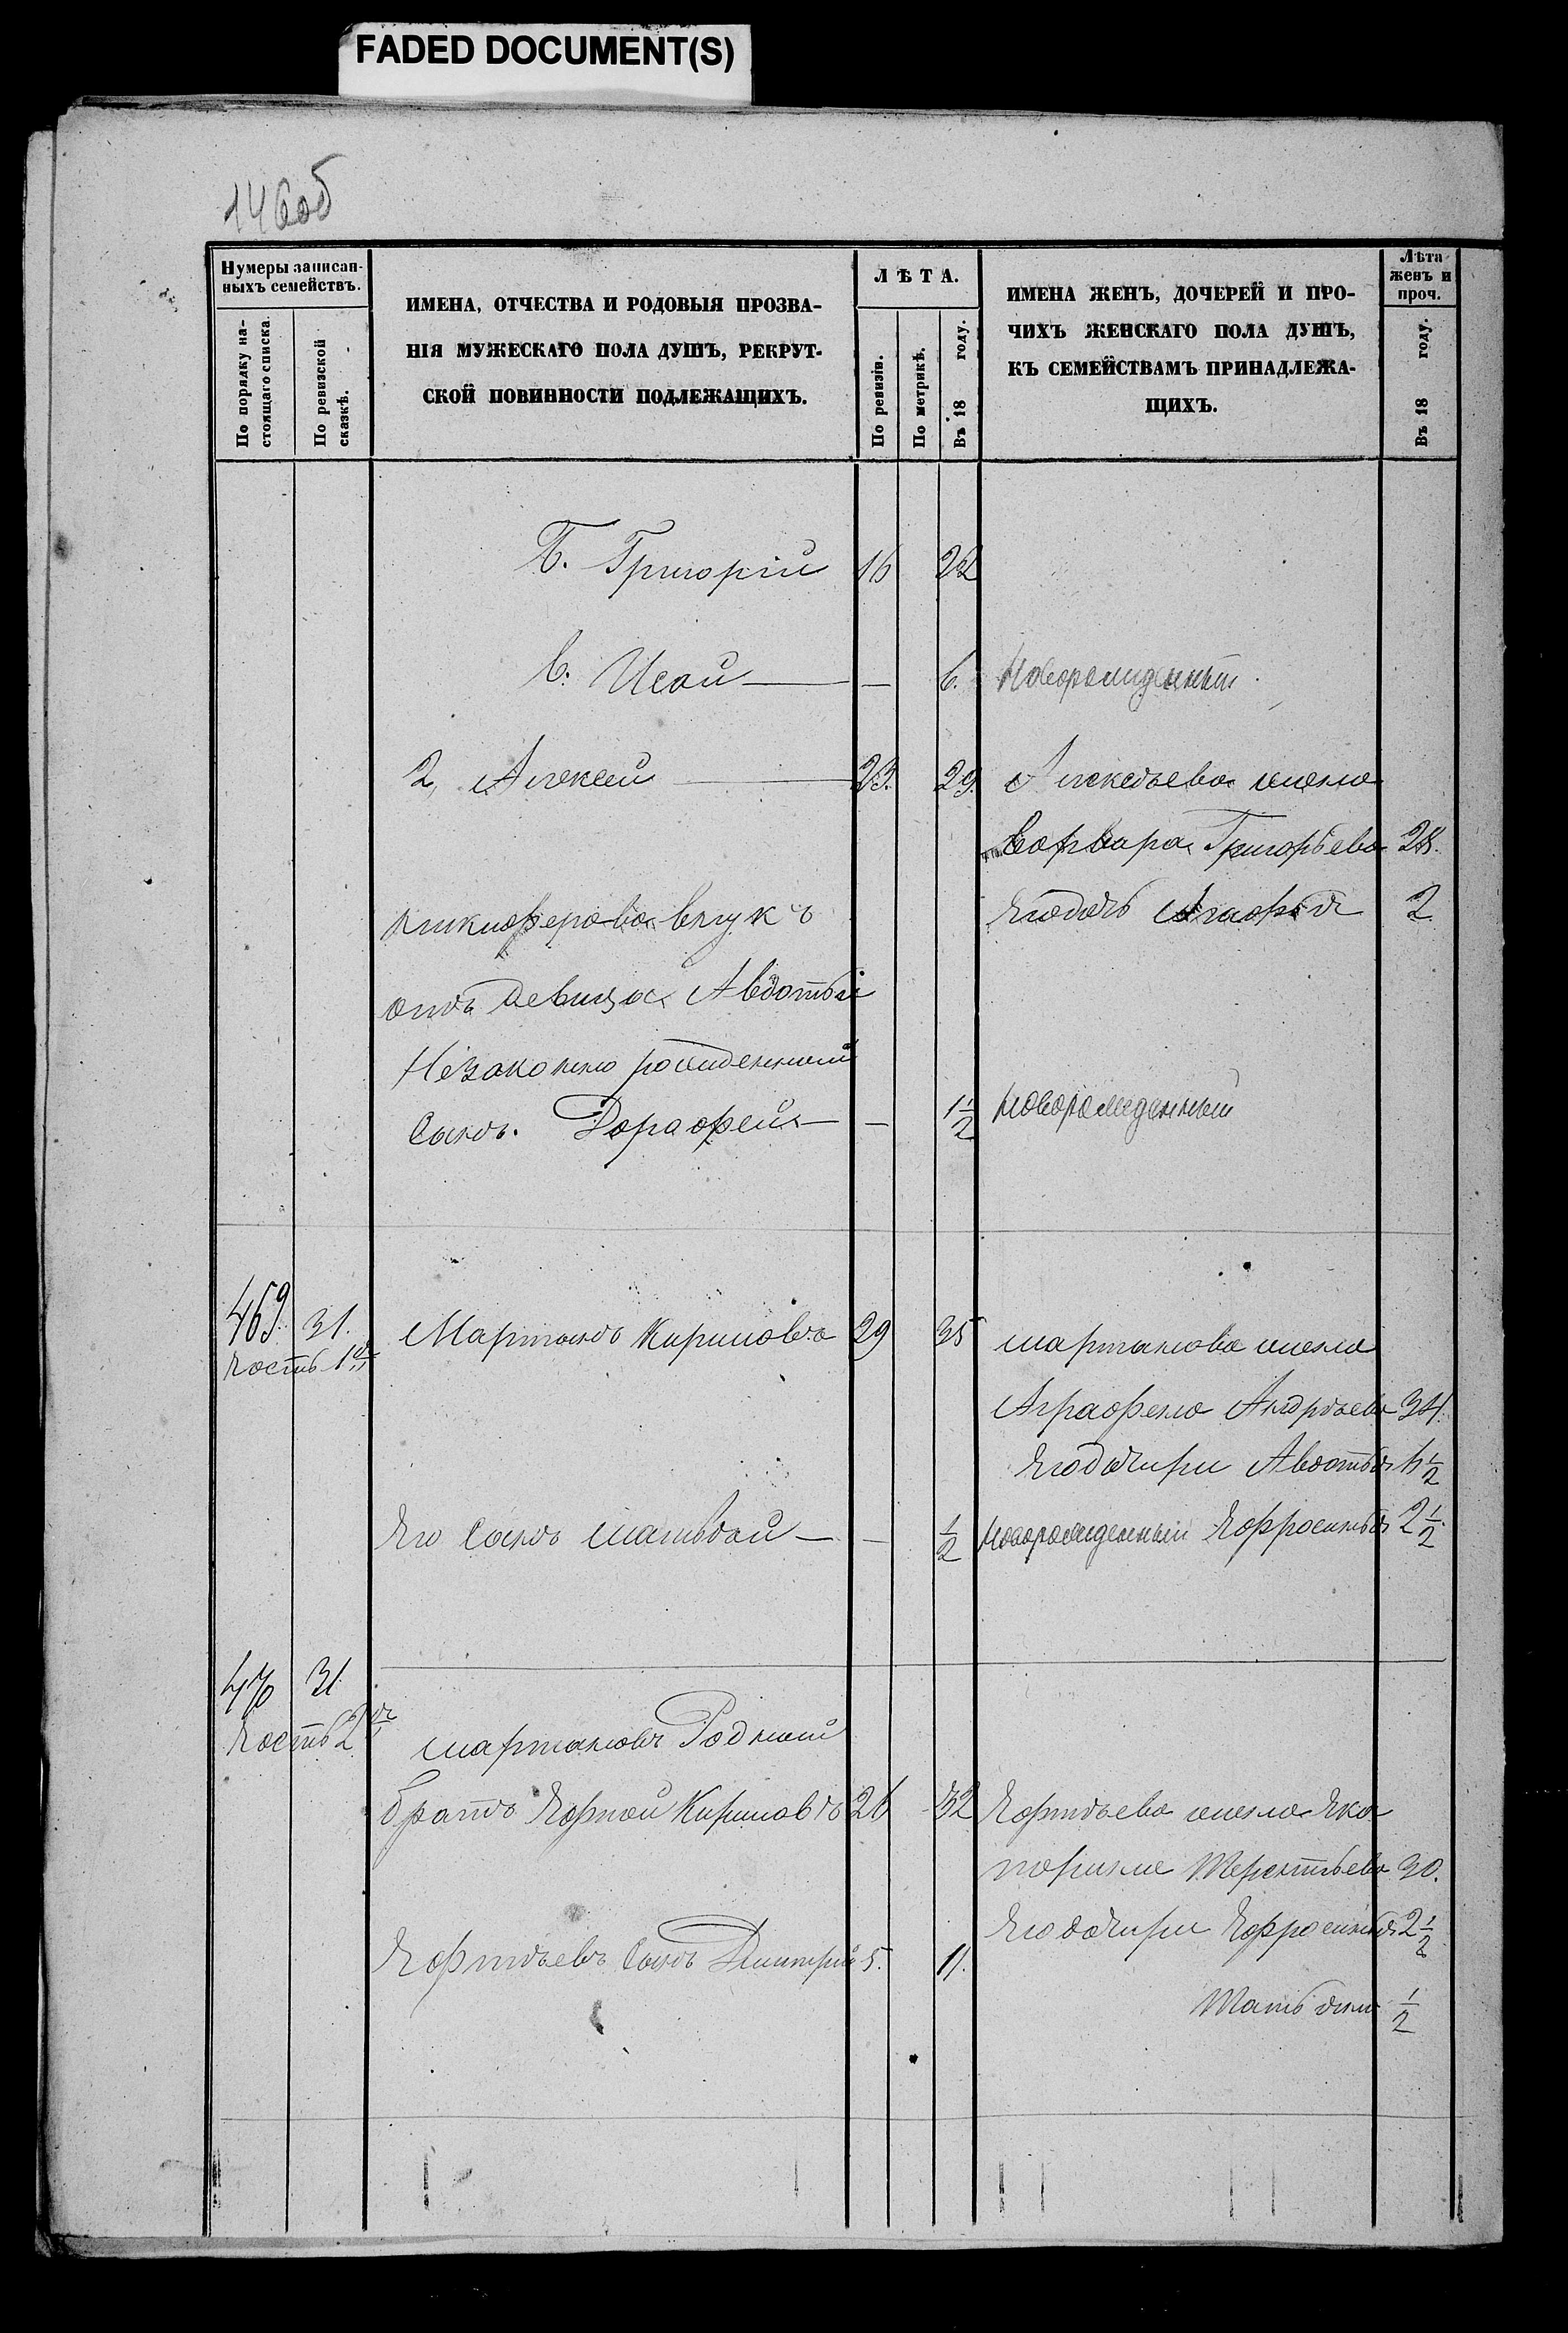 FADED DOCUMENT(S)
146 об
Нумеры записан-
ныхъ семействъ.
По порядку на-
стоящаго списка.
По ревизской
сказкѣ.
ИМЕНА, ОТЧЕСТВА И РОДОВЫЯ ПРОЗВА-
НІЯ МУЖЕСКАГО ПОЛА ДУШЪ, РЕКРУТ-
СКОЙ ПОВИННОСТИ ПОДЛЕЖАЩИХЪ.
ЛѢТА.
По ревизіи.
По метрикѣ.
Въ 18 году.
ИМЕНА ЖЕНЪ, ДОЧЕРЕЙ И ПРО-
ЧИХЪ ЖЕНСКАГО ПОЛА ДУШЪ,
КЪ СЕМЕЙСТВАМЪ ПРИНАДЛЕЖА-
ЩИХЪ.
Лѣта
женъ и
проч.
Въ 18 году.
Б. Григорій 16 22
В. Исай — — 6. Новорожденный
2, Алексей — 23. 29. Алексѣева жена
Варвара Григорьева 28.
Никифорова внукъ
Егодочь Агафья 2
отъ девицы Авдотьи
Незаконно рожденный
Сынъ. Дорофей — — 1 1/2 новорожденный
469 31. Мартынъ Кириловъ 29 35 мартынова жена
Часть 1я
Аграфена Андрѣева 34.
Егодочири Авдотья 4 1/2
Его Сынъ Матвѣй — — 1/2 Новорожденный Ефросинья 2 1/2
470 31
Часть 2я
мартыновъ Родной
братъ Ефтѣй Кириловъ 26 32 Ефтѣева жена Ека
терина Терентьева 30.
Егодочири Ефросинья 2 1/2
Ефтѣевъ Сынъ Дмитрій 5. 11.
Татьяна 1/2